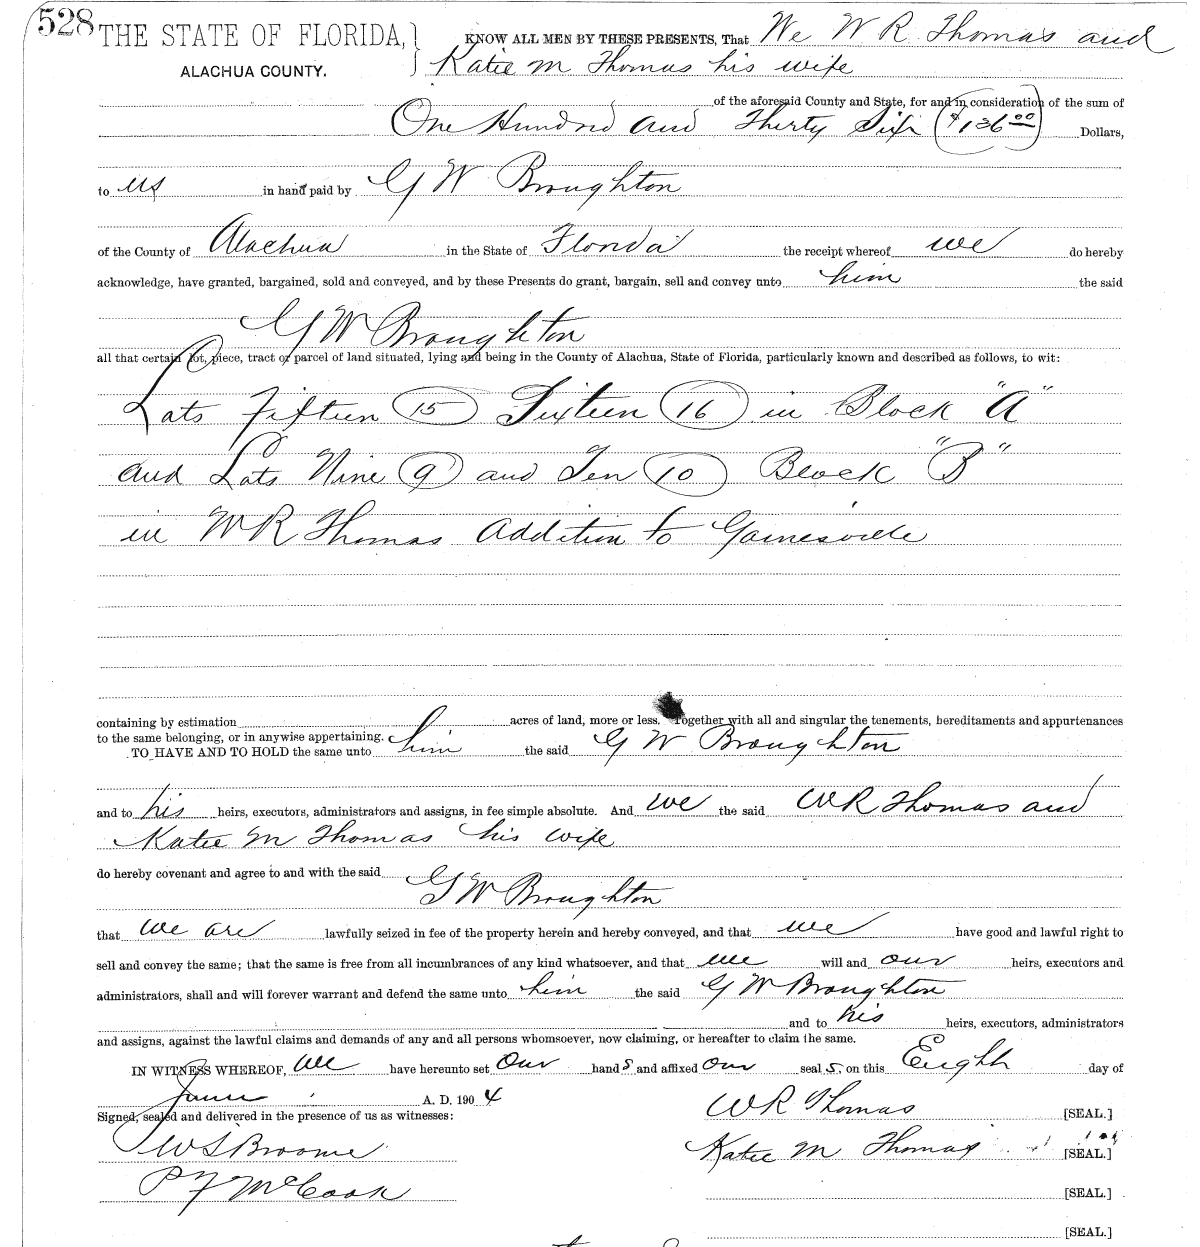 528
THE STATE OF FLORIDA, KNOW ALL MEN BY THESE PRESENTS, That We W R Thomas and
ALACHUA COUNTY. Katie M Thomas his wife
of the aforesaid County and State, for and in consideration of the sum of
One Hundred and Thirty Six ($136.00) Dollars,
to us in hand paid by G W Broughton
of the County of Alachua in the State of Florida the receipt whereof we do hereby
acknowledge, have granted, bargained, sold and conveyed, and by these Presents do grant, bargain, sell and convey unto him the said
G W Broughton
all that certain lot, piece, tract or parcel of land situated, lying and being in the County of Alachua, State of Florida, particularly known and described as follows, to wit:
Lots Fifteen (15) Sixteen (16) in Block "A"
and Lots Nine (9) and Ten (10) Block "B"
in W R Thomas Addition to Gainesville
containing by estimation acres of land, more or less. Together with all and singular the tenements, hereditaments and appurtenances
to the same belonging, or in anywise appertaining.
TO HAVE AND TO HOLD the same unto him the said G W Broughton
and to his heirs, executors, administrators and assigns, in fee simple absolute. And we the said W R Thomas and
Katie M Thomas his wife
do hereby covenant and agree to and with the said
G W Broughton
that we are lawfully seized in fee of the property herein and hereby conveyed, and that we have good and lawful right to
sell and convey the same; that the same is free from all incumbrances of any kind whatsoever, and that we will and our heirs, executors and
administrators, shall and will forever warrant and defend the same unto him the said G W Broughton
and to his heirs, executors, administrators
and assigns, against the lawful claims and demands of any and all persons whomsoever, now claiming, or hereafter to claim the same.
IN WITNESS WHEREOF, We have hereunto set our hand s and affixed our seal s. on this Eighth day of
June A. D. 190 4
Signed, sealed and delivered in the presence of us as witnesses: W R Thomas [SEAL.]
W S Broome Katie M Thomas [SEAL.]
P F McCook [SEAL.]
[SEAL.]